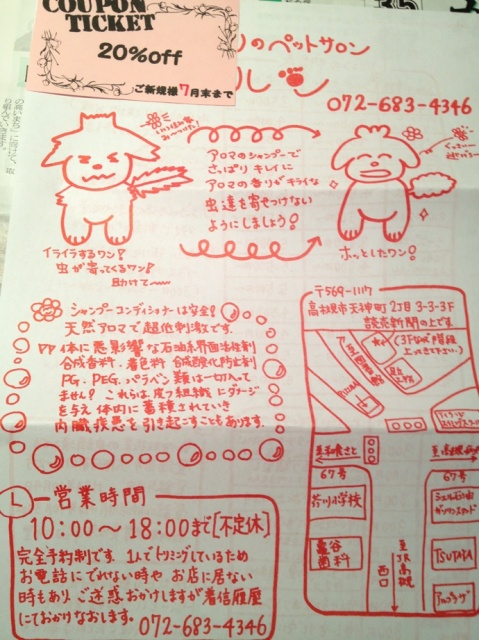 COUPON
TICKET
20%off
ご新規様7月末まで
のペットサロン
072-683-4346
アロマのシャンプーで
さっぱりキレイに
アロマの香りがキライな
虫達を寄せつけない
ようにしましょう!
イライラするワン!
虫が寄ってくるワン!
助けて〜
ホッとしたワン!
シャンプーコンディショナーは安全!
天然アロマで超低刺激です.
体に悪影響な石油系界面活性剤
合成香料.着色料 合成酸化防止剤
PG.PEG.パラベン類は一切入って
ません!これらは皮フ組織にダメージ
を与え体内に蓄積されていき
内臓疾患を引き起こすこともあります.
〒569-1117
高槻市天神町2丁目3-3-3F
読売新聞の上です
67号
67号
芥川小学校
亀谷
歯科
至JR高槻
西口
TSUTAYA
営業時間
10:00〜18:00まで[不定休]
完全予約制です.1人でトリミングしているため
お電話にでれない時や お店に居ない
時もあり ご迷惑おかけしますが着信履歴
にておかけなおします.
072-683-4346